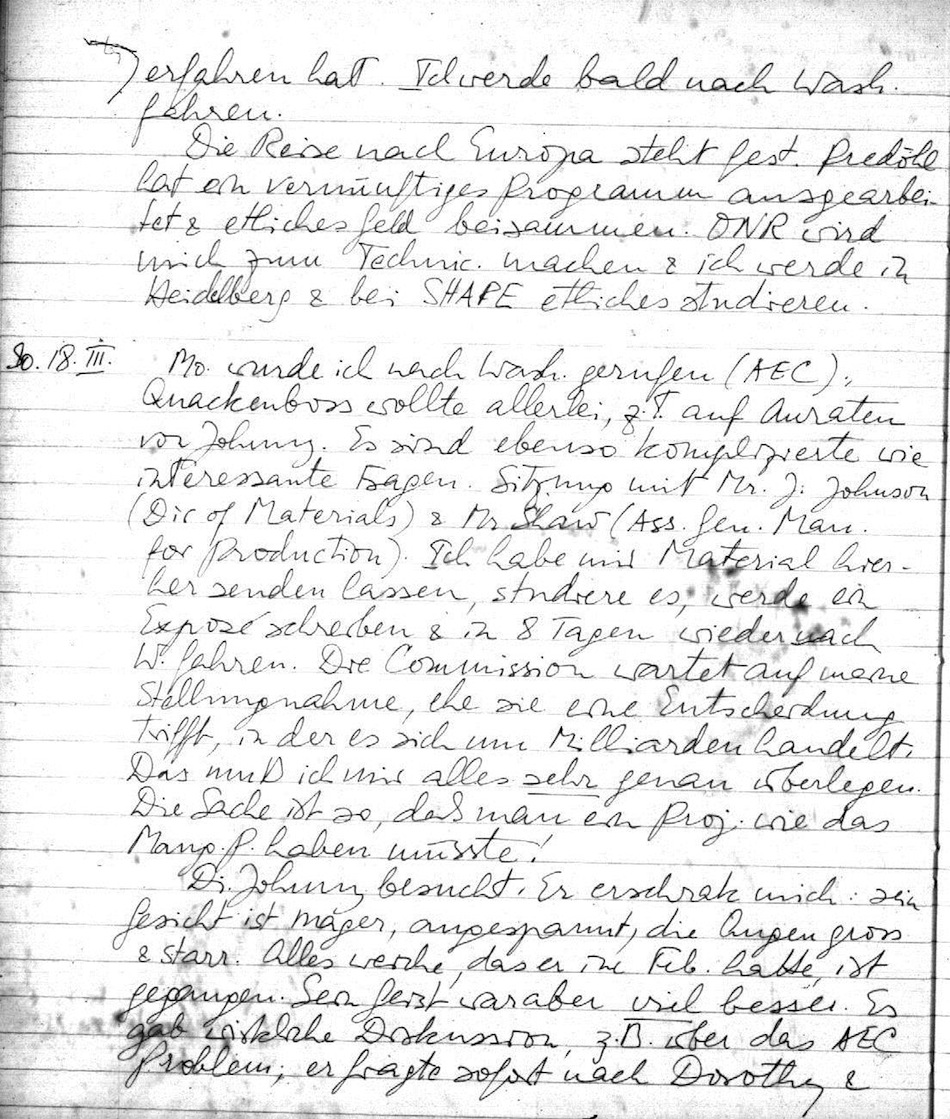 erfahren hat. Ich werde bald nach Wash.
fahren.
Die Reise nach Europa steht fest. Predöhl
hat ein vernünftiges Programm ausgearbei-
tet & etliches Geld beisammen. ONR wird
mich zum Technic. machen & ich werde in
Heidelberg & bei SHAPE etliches studieren.
So. 18. III. Mo. wurde ich nach Wash. gerufen (AEC),
Quackenboss wollte allerlei, z.T. auf Anraten
von Johnny. Es sind ebenso komplizierte wie
interessante Fragen. Sitzung mit Mr. J. Johnson
(Dir of Materials) & Mr Shaw (Ass. Gen. Man.
for Production). Ich habe mir Material hier-
her senden lassen, studiere es, werde ein
Exposé schreiben & in 8 Tagen wieder nach
W. fahren. Die Commission wartet auf meine
Stellungnahme, ehe sie eine Entscheidung
trifft, in der es sich um Milliarden handelt.
Das muß ich mir alles sehr genau überlegen.
Die Sache ist so, daß man ein Proj. wie das
P. haben müsste!
Di. Johnny besucht. Er erschrak mich: sein
Gesicht ist mager, angespannt, die Augen gross
& starr. Alles weiche, das er im Feb. hatte, ist
gegangen. Sein Geist war aber viel besser. Es
gab wirkliche Diskussion, z.B. über das AEC
Problem; er fragte sofort nach Dorothy &